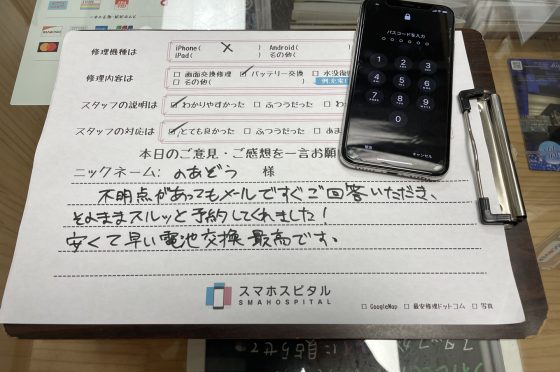 修理機種は
iPhone( X ) Android(
iPad( ) その他(
修理内容は
□ 画面交換修理 ☑ バッテリー交換 □ 水没復
□ その他(
スタッフの説明は
☑ わかりやすかった □ ふつうだった □ わ
スタッフの対応は
☑ とても良かった □ ふつうだった □ あま
本日のご意見・ご感想を一言お願
ニックネーム: のあどう 様
不明点があってもメールですぐご回答いただき、
そのままスルッと予約してくれました!
安くて早い電池交換最高です。
スマホスピタル
SMAHOSPITAL
□ GoogleMap □ 最安修理ドットコム □ 写真
パスコードを入力
1 2 3
4 5 6
7 8 9
0
緊急 キャンセル